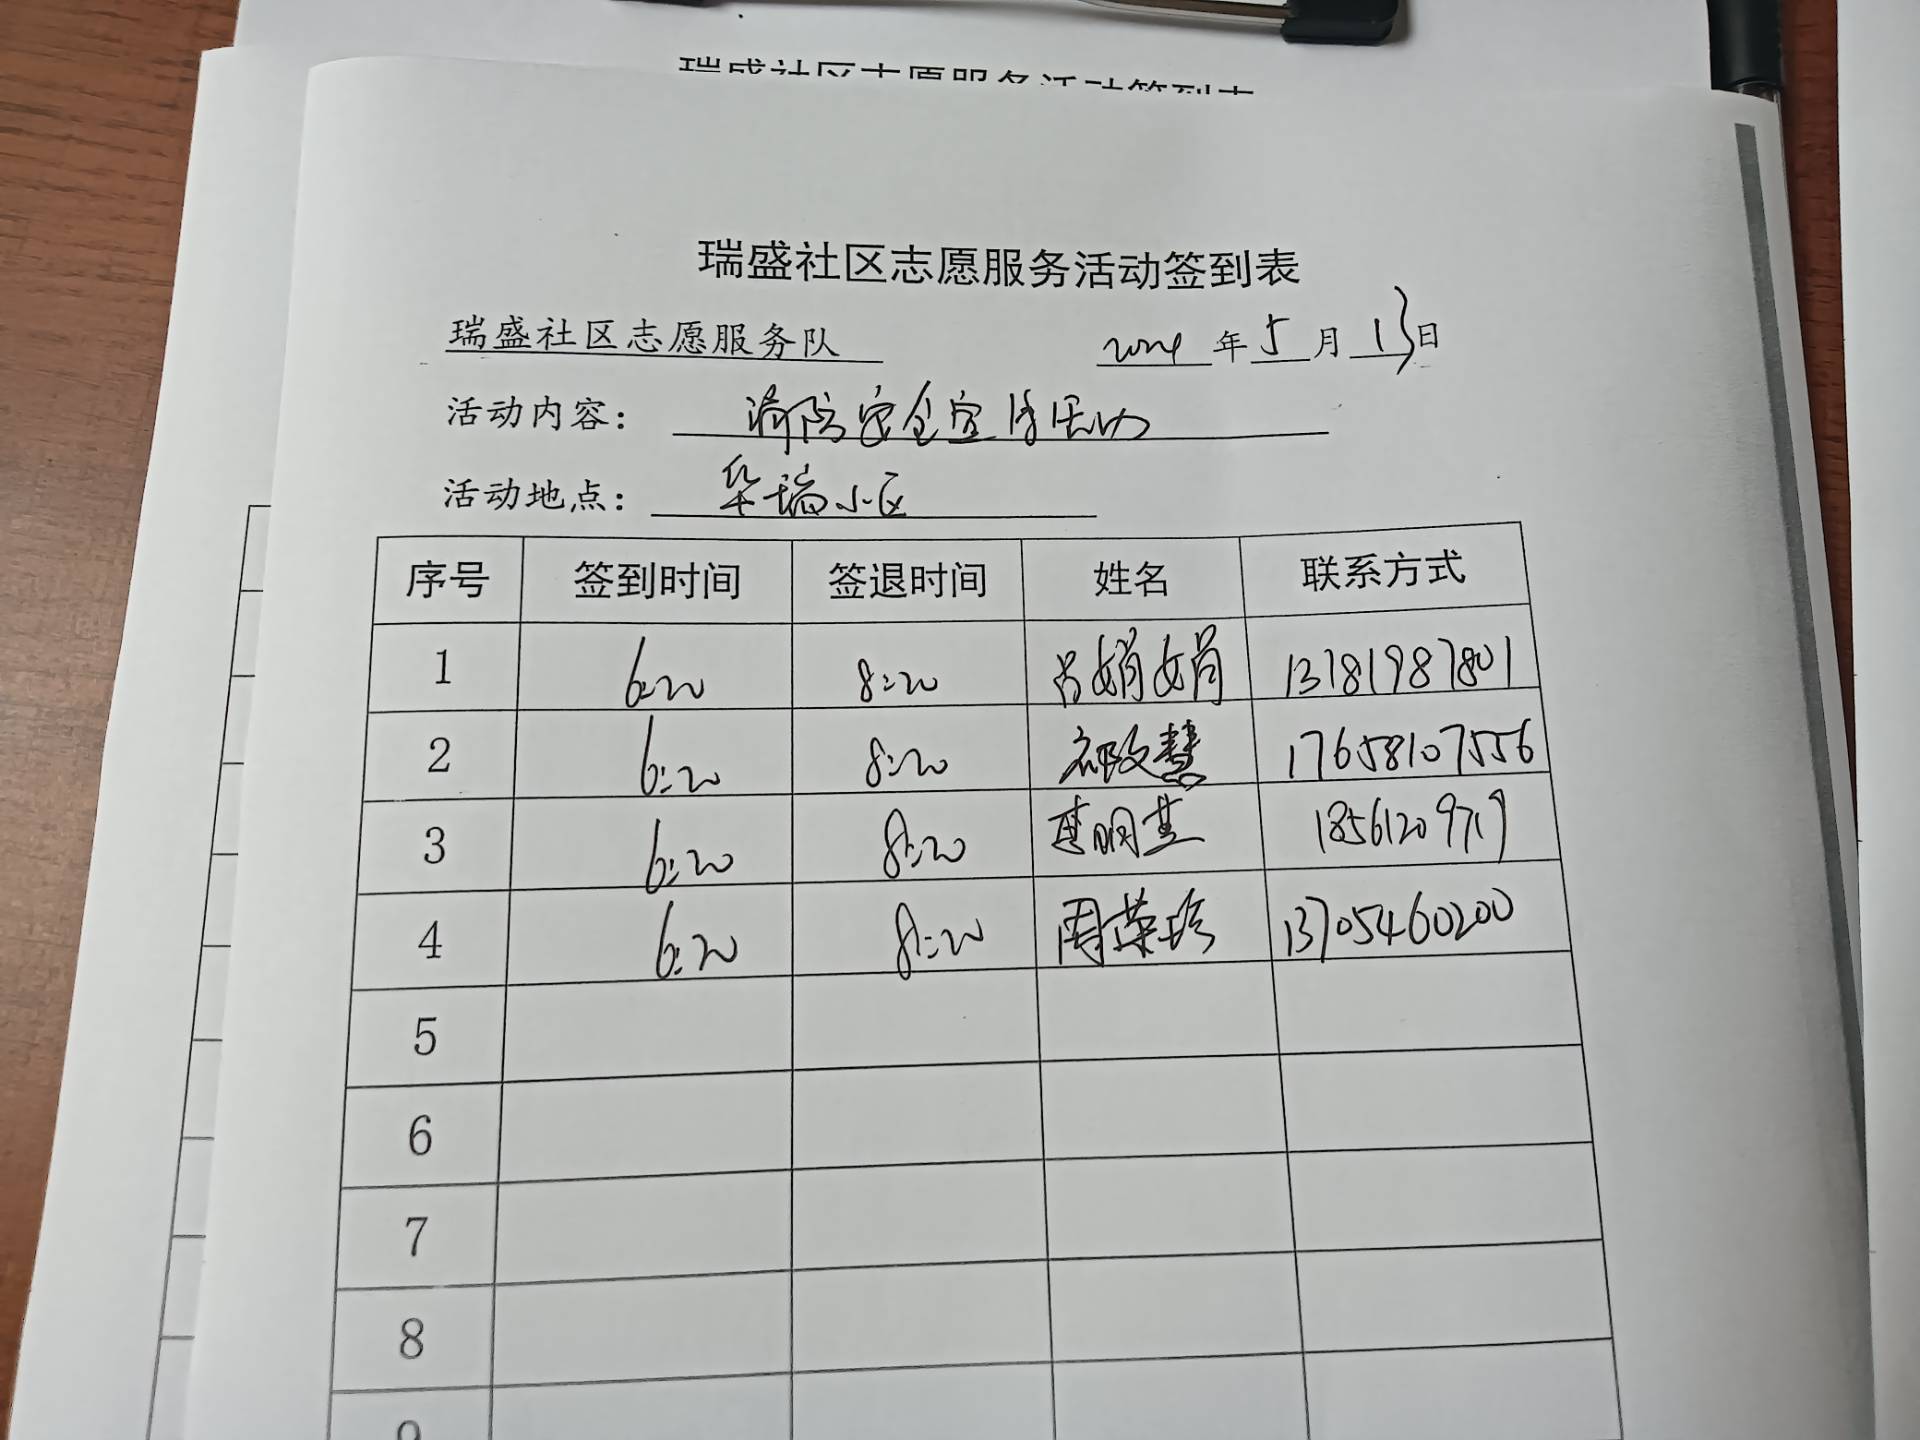 瑞盛社区志愿服务活动签到表
瑞盛社区志愿服务活动签到表
瑞盛社区志愿服务队 2024 年 5 月 13 日
活动内容： 消防安全宣传活动
活动地点： 华瑞小区
序号 签到时间 签退时间 姓名 联系方式
1 6:20 8:20 吕娟娟 13781987801
2 6:20 8:20 祁改慧 17658107556
3 6:20 8:20
4 6:20 8:20 周荣珍 13705460200
5
6
7
8
9